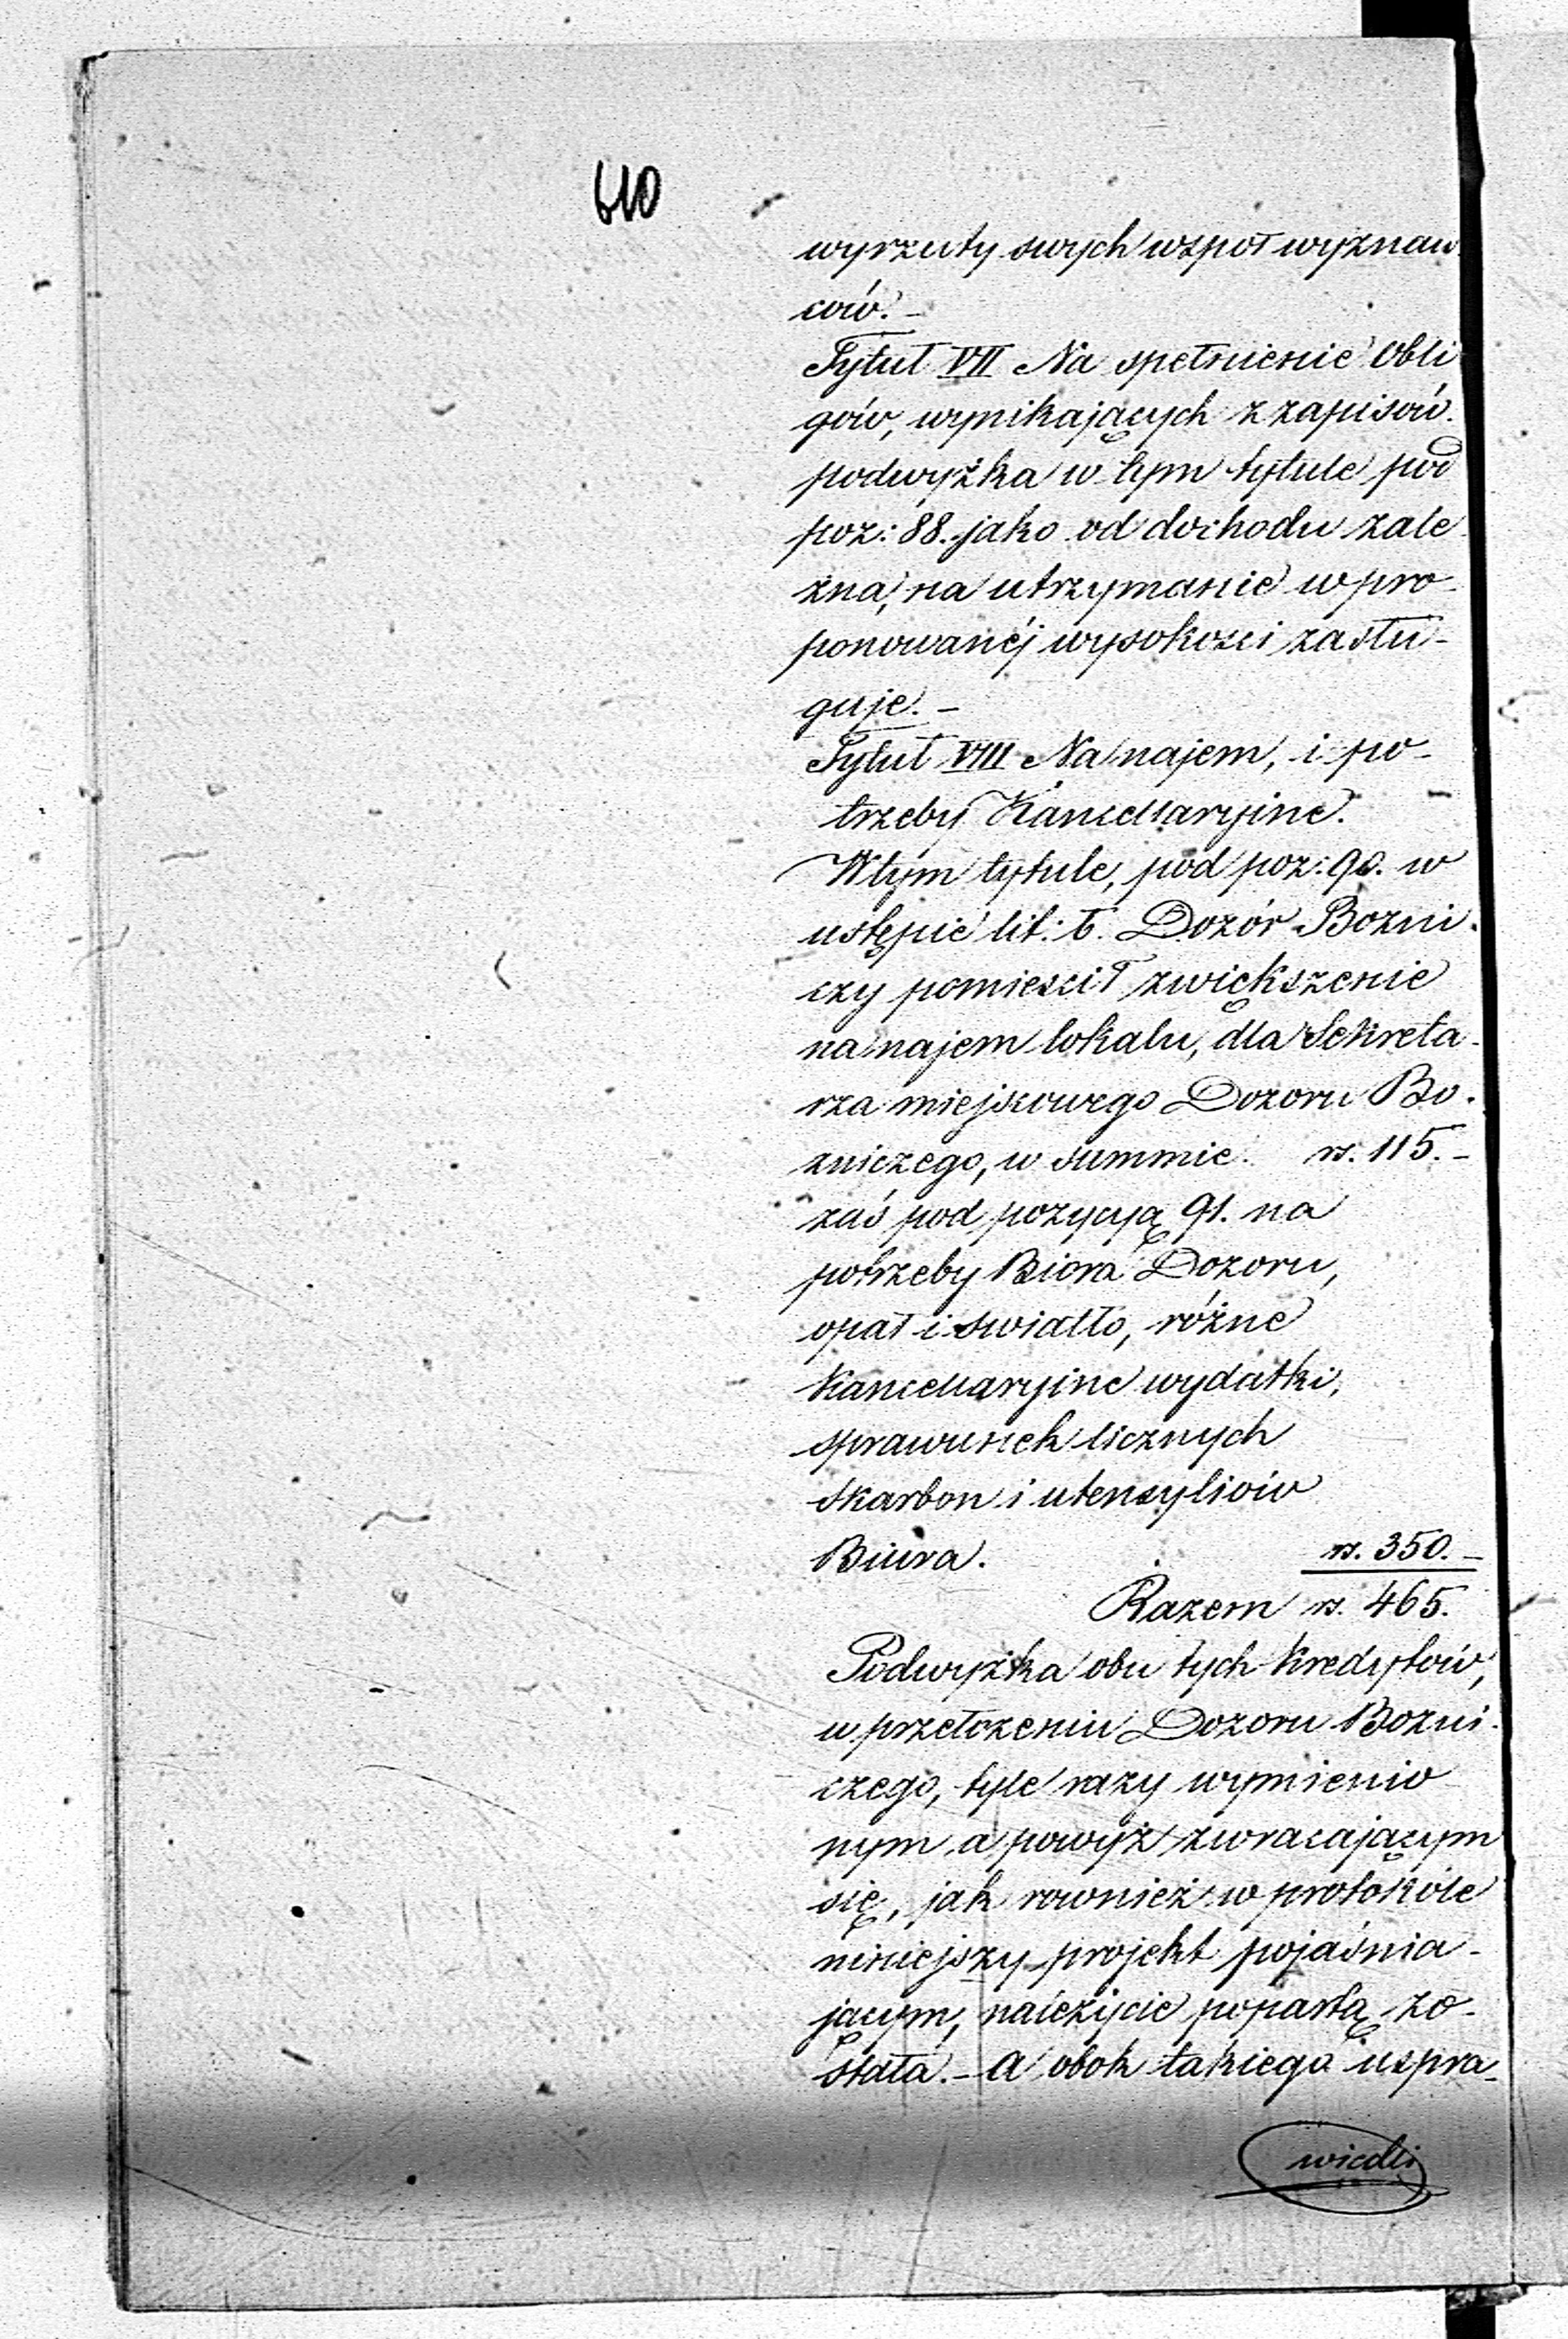 610
wyrzuty swych współ wyznaw
ców. –
Tytuł VII Na spełnienie Obli
gów, wynikających z zapisów.
podwyżka w tym tytule pod
poz: 88. jako od dochodu zale
żna, na utrzymanie w pro-
ponowanéj wysokosci zasłu-
guje. –
Tytuł VIII Na najem, i po-
trzeby Kancellaryjne.
W tym tytule, pod poz: 90. w
ustępie lit: b. Dozór Bozni-
czy pomiescił zwiększenie
na najem lokalu, dla Sekreta-
rza miejscowego Dozoru Bo-
zniczego, w summie. rs. 115. –
zaś pod pozycją 91. na
potrzeby Biora Dozoru,
opał i swiatło, różne
Kancellaryjne wydatki,
sprawunek licznych
skarbon i utensyliów
Biura. rs. 350. –
Razem rs. 465.
Podwyżka obu tych Kredytów,
w przełożeniu Dozoru Bozni-
czego, tyle razy wymienio
nym a powyż zwracającym
się, jak rownież w protokóle
niniejszy projekt pojaśnia-
jącym, należycie popartą zo-
stała. – A obok takiego uspra-
wiedli